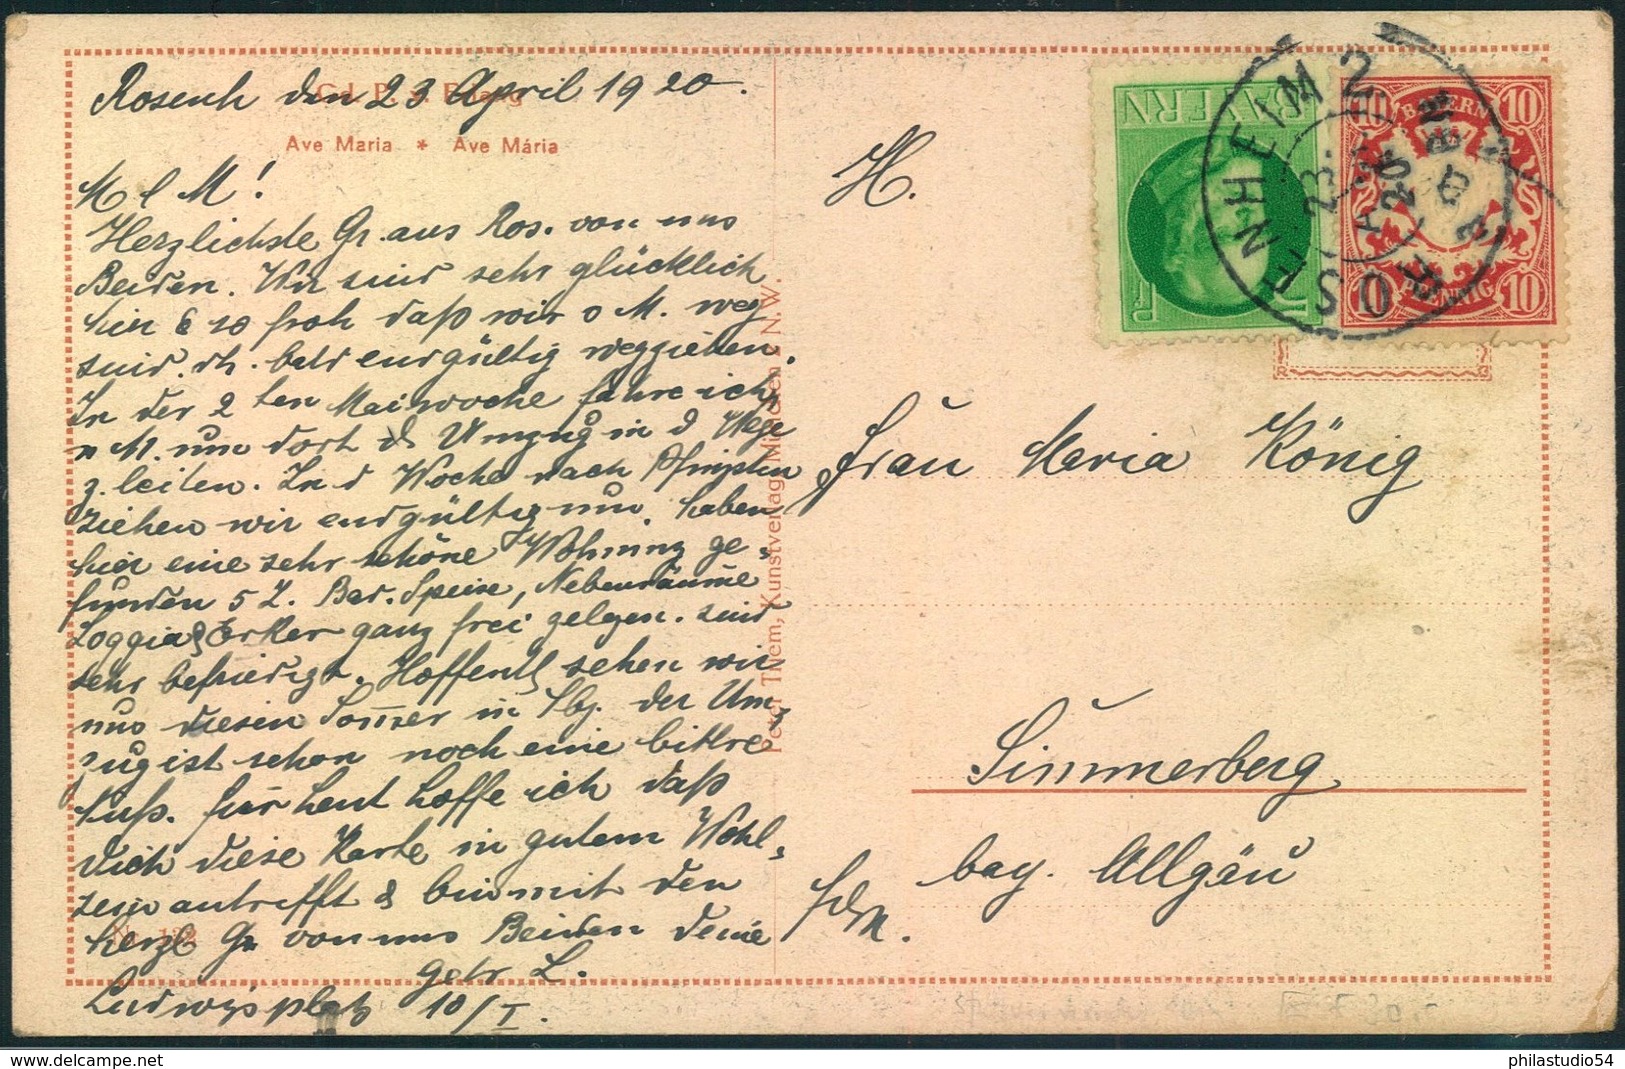 Rosenh den 23 April 1920.
Ave Maria * Ave Mária
M l M!
Herzlichste Gr. aus Ros. von uns
Beiden. Wir sind sehr glücklich
hier & so froh daß wir v M. weg
sind. dh. bald endgültig wegziehen.
In der 2 ten Maiwoche fahre ich
n M. um dort d Umzug in d Wege
z. leiten. In d Woche nach Pfingsten
ziehen wir endgültig um. haben
hier eine sehr schöne Wohnung ge=
funden 5 Z. Bad. Speise, Nebenräume
Loggia & Erker ganz frei gelegen. sind
sehr befriedigt. Hoffentl sehen wir
uns diesen Sommer in Sbg. der Um=
zug ist schon noch eine bittre
Nuß. für heut hoffe ich daß
Dich diese Karte in gutem Wohl=
sein antrifft & bin mit den
herzl Gr von uns Beiden Deine
getr L.
Ludwigsplatz 10/I.
Peter Them, Kunstverlag München N.W.
H.
Frau Maria König
Simmerberg
bay. Allgäu
BAYERN
BAYERN
10 10
PFENNIG
10 10
ROSENHEIM 2
23.
20
philastudio54